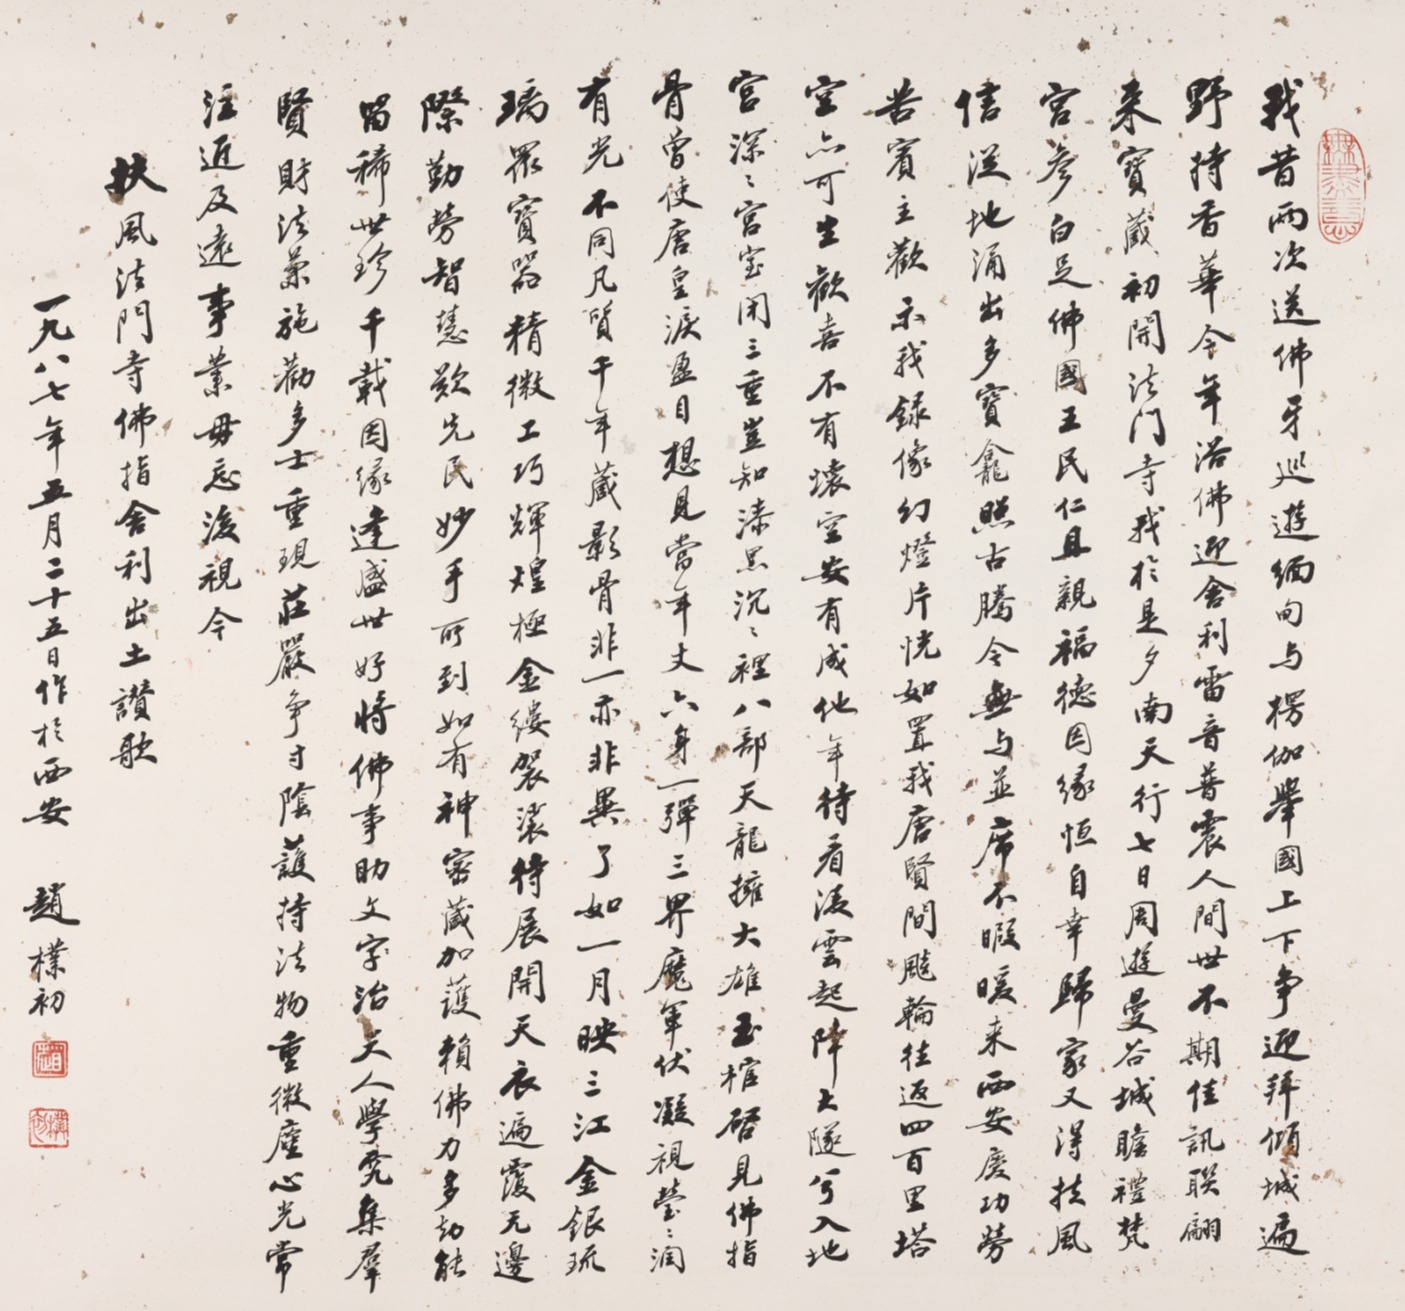 我昔兩次送佛牙巡遊緬甸与楞伽舉國上下争迎拜傾城遍
野持香華今年浴佛迎舍利雷音普震人間世不期佳訊联翩
来寶藏初開法门寺我於是夕南天行七日周遊曼谷城瞻禮梵
宮参白足佛國王民仁且親福德因緣恒自幸歸家又得扶風
信涇地涌出多寶龕照古騰今無与並席不暇暖来西安慶功勞
苦賓主歡示我録像幻燈片恍如置我唐賢間飈輪往返四百里塔
空亦可生歡喜不有壞空安有成他年待看凌雲起陣大隧兮入地
宮深〻宮室闭三重豈知漆黑沉〻裡八部天龍擁大雄玉棺啓見佛指
骨曾使唐皇淚盈目想見當年丈六身一彈三界魔軍伏凝視瑩〻润
有光不同凡質千年藏影骨非一亦非異了如一月映三江金銀琉
璃眾寶器精微工巧輝煌極金缕袈裟待展開天衣遍覆无邊
際勤勞智慧歎先民妙手所到如有神密藏加護賴佛力多劫能
留稀世珍千載因缘逢盛世好將佛事助文字治天人學究集羣
賢財法兼施勸多士重現莊嚴争寸陰護持法物重微塵心光常
注近及遠事業毋忘後視今
扶風法門寺佛指舍利出土讃歌
一九八七年五月二十五日作於西安 趙樸初